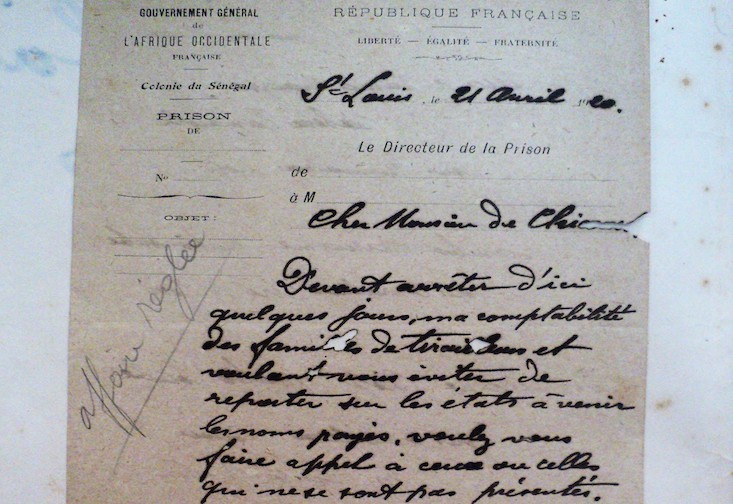 GOUVERNEMENT GÉNÉRAL
de
L'AFRIQUE OCCIDENTALE
FRANÇAISE
Colonie du Sénégal
PRISON
DE
No
OBJET:
affaire réglée
RÉPUBLIQUE FRANÇAISE
LIBERTÉ — ÉGALITÉ — FRATERNITÉ
St Louis, le 21 Avril 1920.
Le Directeur de la Prison
de
à M
Cher Monsieur de
Devant arrêter d'ici
quelques jours, ma comptabilité
des familles de tirailleurs et
voulant vous éviter de
reporter sur les états à venir
les noms payés, voulez vous
faire appel à ceux ou celles
qui ne se sont pas présentés.